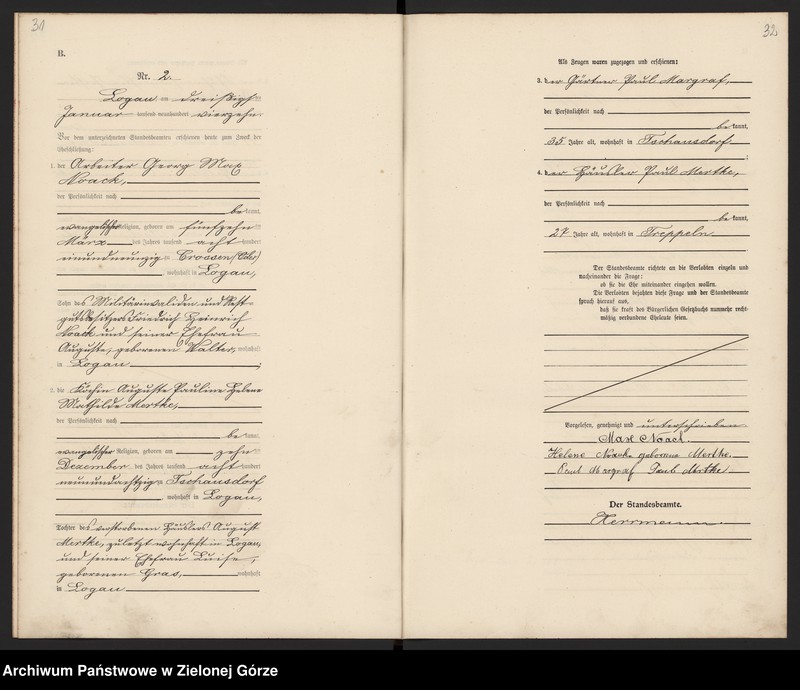 31
B.
Nr. 2.
Logau am dreißigsten
Januar tausend neunhundert vierzehn
Vor dem unterzeichneten Standesbeamten erschienen heute zum Zweck der
Eheschließung:
1. der Arbeiter Georg Max
Noack,
der Persönlichkeit nach
be kannt,
evangelischer Religion, geboren am fünfzehn
März des Jahres tausend acht hundert
einundneunzig in Crossen (Oder)
, wohnhaft in Logau,
Sohn des Militärinvaliden und Rest-
gutsbesitzers Friedrich Heinrich
Noack und seiner Ehefrau
Auguste, geborenen Walter, wohnhaft
in Logau ;
2. die Köchin Auguste Pauline Helene
Mathilde Mertke,
der Persönlichkeit nach
be kannt,
evangelischer Religion, geboren am zehn
Dezember des Jahres tausend acht hundert
neunundachtzig in Tschausdorf
, wohnhaft in Logau,
Tochter des verstorbenen Häuslers August
Mertke, zuletzt wohnhaft in Logau,
und seiner Ehefrau Luise,
geborenen Gras, wohnhaft
in Logau
32
Als Zeugen waren zugezogen und erschienen:
3. der Gärtner Paul Margraf,
der Persönlichkeit nach
be kannt,
35 Jahre alt, wohnhaft in Tschausdorf
;
4. der Häusler Paul Mertke,
der Persönlichkeit nach
be kannt,
27 Jahre alt, wohnhaft in Treppeln
Der Standesbeamte richtete an die Verlobten einzeln und
nacheinander die Frage:
ob sie die Ehe miteinander eingehen wollen.
Die Verlobten bejahten diese Frage und der Standesbeamte
sprach hierauf aus,
daß sie kraft des Bürgerlichen Gesetzbuchs nunmehr recht-
mäßig verbundene Eheleute seien.
Vorgelesen, genehmigt und unterschrieben
Max Noack.
Helene Noack geborene Mertke.
Paul Margraf Paul Mertke
Der Standesbeamte.
Herrmann.
Archiwum Państwowe w Zielonej Górze